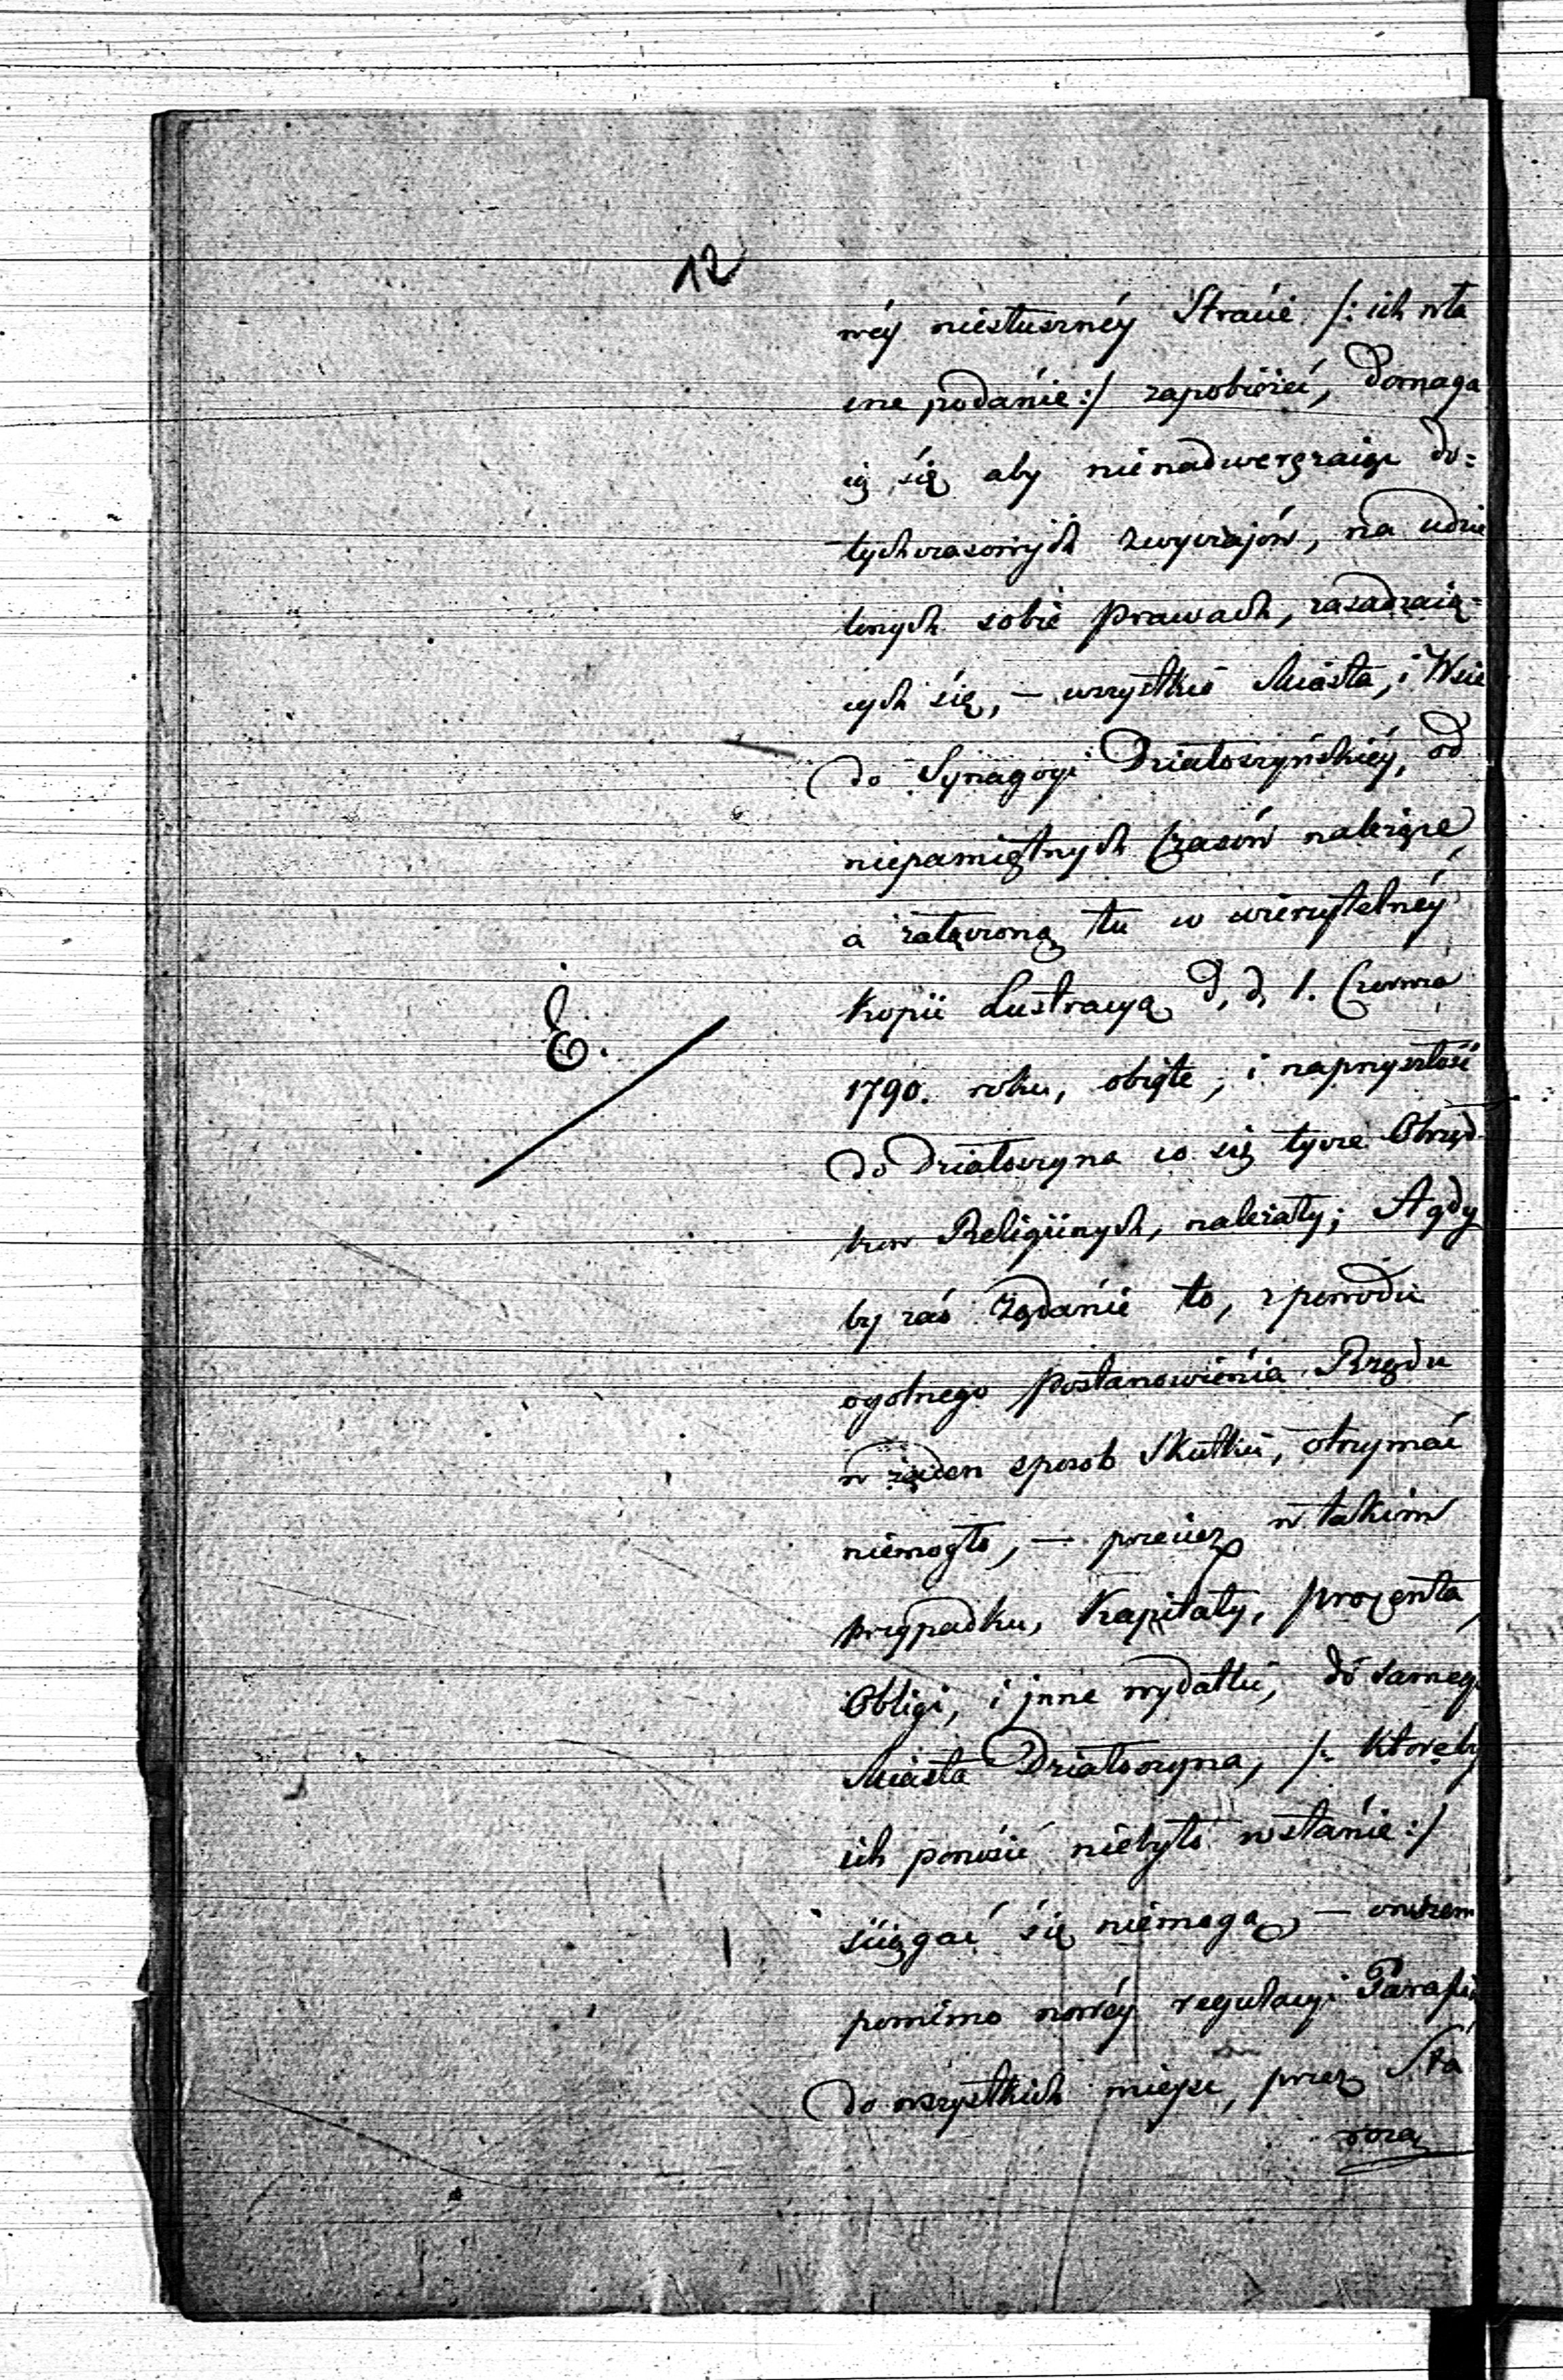 12
wéy niesłusznéy Stracie /: ich wła
sne podánie :/ zapobiżeć, domaga
ią się aby nienadwerężaiąc do=
tychczasowych zwyczajów, na udzie
lonych sobie prawach, zasadzaią=
cych się, — wszystkie Miasta, i Wsie
do Synagogi Działoszyńskiéy, od
niepamiętnych Czasów należące,
a załączoną tu w wierzytelnéy
Kopii Lustracyą d. d. 1. Czerwca
E.
1790. roku, obięte, i naprzyszłość
do Działoszyna co się tycze Obrząd
kow Religiinych, należały; Agdy
by zaś Żądánie to, z powodu
ogolnego postanowienia Rządu
w żaden sposob Skutku, otrzymać
niemogło, — przecież w takim
przypadku, Kapitały, procenta,
Obligi, i jnne wydatki, do samego
Miasta Działoszyna, /: któreby
ich ponosić niebyło wstánie :/
ściągać się niemogą, — owszem
pomimo nowéy regulacyi Parafii
do wszystkich mieysc, przez Sta
roza